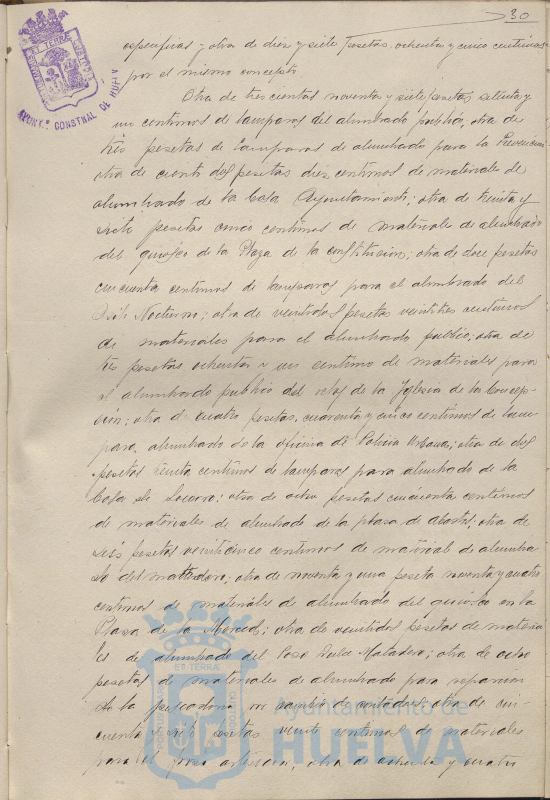 30
AYUNT.º CONSTNAL DE HUELVA
específicas y otra de diez y siete pesetas ochenta y cinco centimos
por el mismo concepto
Otra de trescientas noventa y siete pesetas setenta y
un centimos de lamparas del alumbrado publico, otra de
tres pesetas de lamparas de alumbrado para la Prevencion
otra de ciento dos pesetas diez centimos de materiales de
alumbrado de la Casa Ayuntamiento; otra de treinta y
siete pesetas cinco centimos de materiales de alumbrado
del quiosco de la Plaza de la Constitucion; otra de doce pesetas
cincuenta centimos de lamparas para el alumbrado del
Asilo Nocturno; otra de veintidos pesetas veintitres centimos
de materiales para el alumbrado publico; otra de
tres pesetas ochenta y un centimo de materiales para
el alumbrado publico del reloj de la Iglesia de la Concep-
ción; otra de cuatro pesetas, cuarenta y cinco centimos de lam
para, alumbrado de la oficina de Policia Urbana; otra de dos
pesetas treinta centimos de lamparas para alumbrado de la
Casa de Socorro; otra de ocho pesetas cincuenta centimos
de materiales de alumbrado de la plaza de abastos; otra de
seis pesetas veinticinco centimos de material de alumbra
do del matadero; otra de noventa y una peseta noventa y cuatro
centimos de materiales de alumbrado del quiosco en la
Plaza de la Merced; otra de veintidos pesetas de materia
les de alumbrado del Pozo Dulce Matadero; otra de ocho
pesetas de materiales de alumbrado para reparacion
de la pescaderia por cambio de contador; otra de cin-
cuenta y siete pesetas veinte centimos de materiales
para el pozo artesiano, otra de ochenta y cuatro
Ayuntamiento de
HUELVA